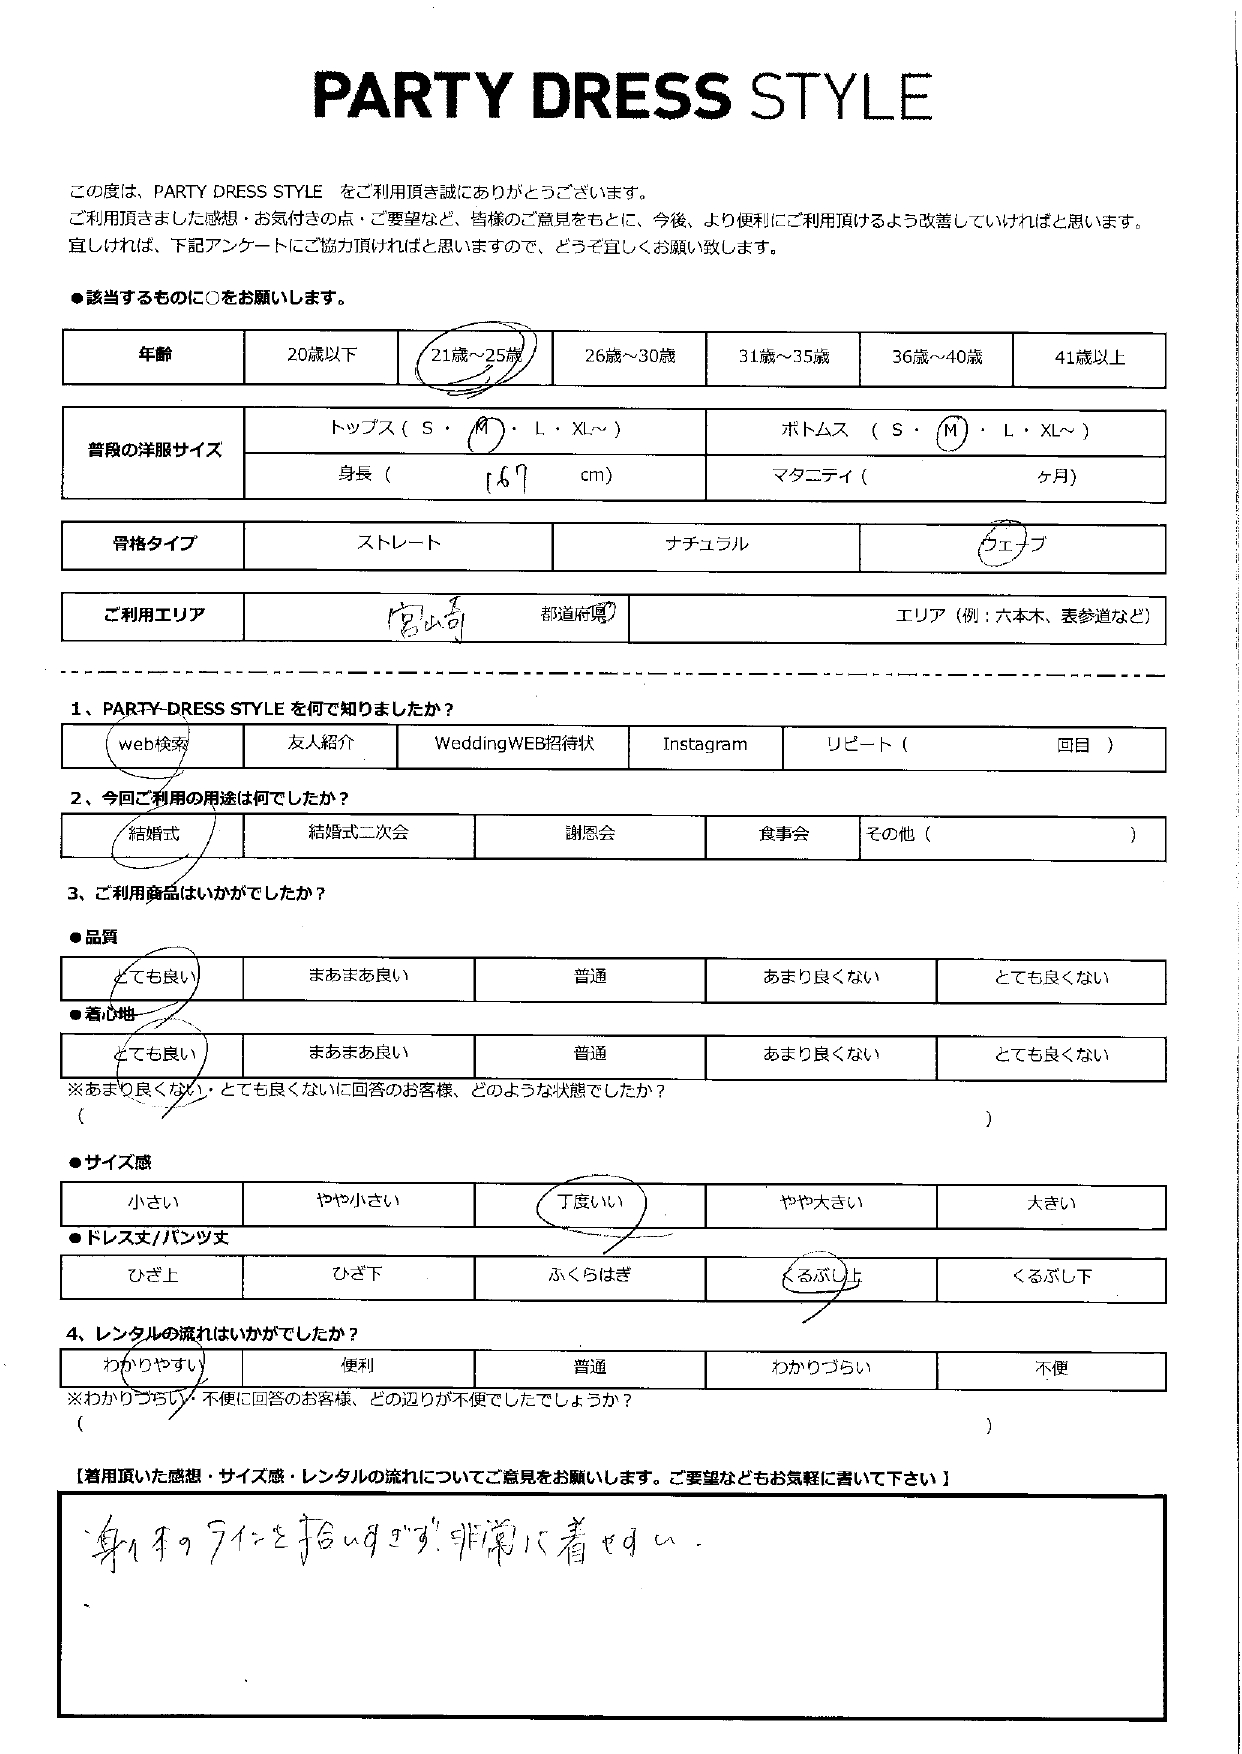 PARTY DRESS STYLE
この度は、PARTY DRESS STYLE をご利用頂き誠にありがとうございます。
ご利用頂きました感想・お気付きの点・ご要望など、皆様のご意見をもとに、今後、より便利にご利用頂けるよう改善していければと思います。
宜しければ、下記アンケートにご協力頂ければと思いますので、どうぞ宜しくお願い致します。
●該当するものに○をお願いします。
年齢 20歳以下 21歳～25歳 26歳～30歳 31歳～35歳 36歳～40歳 41歳以上
普段の洋服サイズ
トップス ( S ・ M ・ L ・ XL～ ) ボトムス ( S ・ M ・ L ・ XL～ )
身長 ( 167 cm) マタニティ ( ヶ月)
骨格タイプ ストレート ナチュラル ウェーブ
ご利用エリア 宮崎 都道府県 エリア（例：六本木、表参道など）
1、PARTY DRESS STYLE を何で知りましたか？
web検索 友人紹介 WeddingWEB招待状 Instagram リピート ( 回目 )
2、今回ご利用の用途は何でしたか？
結婚式 結婚式二次会 謝恩会 食事会 その他 ( )
3、ご利用商品はいかがでしたか？
●品質
とても良い まあまあ良い 普通 あまり良くない とても良くない
●着心地
とても良い まあまあ良い 普通 あまり良くない とても良くない
※あまり良くない・とても良くないに回答のお客様、どのような状態でしたか？
( )
●サイズ感
小さい やや小さい 丁度いい やや大きい 大きい
●ドレス丈/パンツ丈
ひざ上 ひざ下 ふくらはぎ くるぶし上 くるぶし下
4、レンタルの流れはいかがでしたか？
わかりやすい 便利 普通 わかりづらい 不便
※わかりづらい・不便に回答のお客様、どの辺りが不便でしたでしょうか？
( )
【着用頂いた感想・サイズ感・レンタルの流れについてご意見をお願いします。ご要望などもお気軽に書いて下さい 】
身体のラインを拾いすぎず、非常に着やすい.